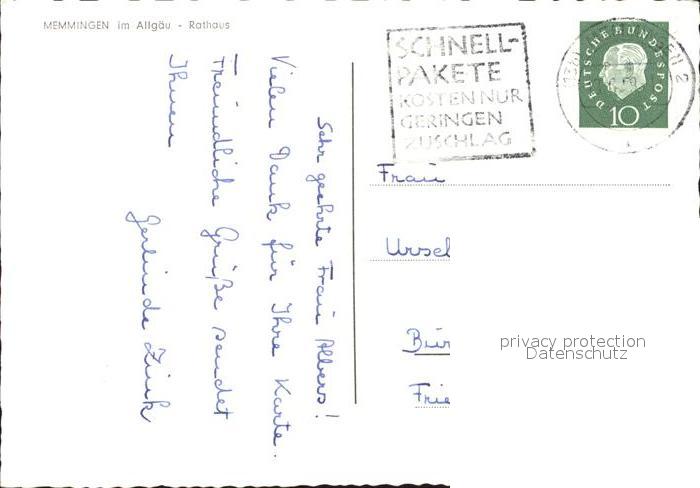 MEMMINGEN im Allgäu - Rathaus
SCHNELL-
PAKETE
KOSTEN NUR
GERINGEN
ZUSCHLAG
DEUTSCHE BUNDESPOST
10
Sehr geehrte Frau Albers!
Vielen Dank für Ihre Karte.
Freundliche Grüße sendet
Ihnen
Gerlinde Zink
Frau
Ursel
privacy protection
Datenschutz